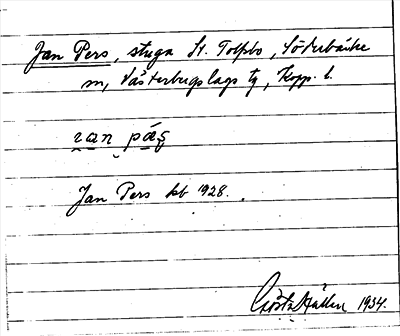 Jan Pers, stuga St. Tolfsbo, Söderbärke
sn, Västerbergslags tg, Kopp. l.
Jan Pers kb 1928.
Gösta Hällen 1934.